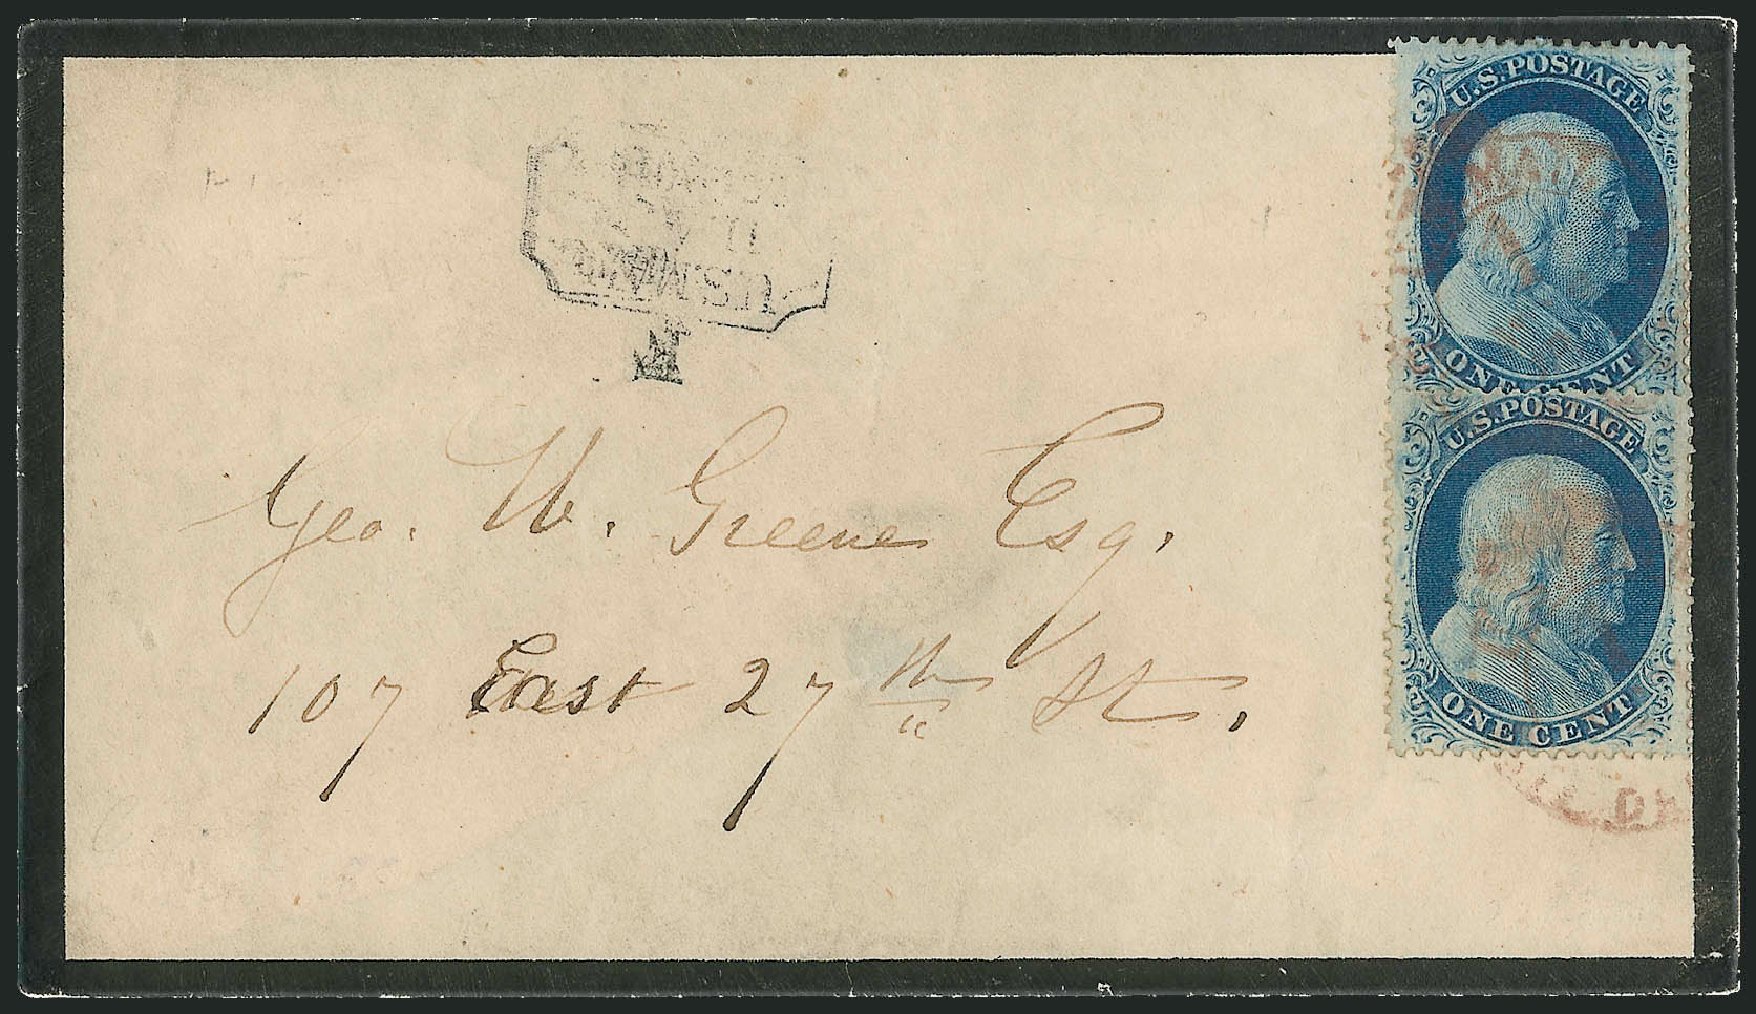 U.S. POSTAGE
ONE CENT
U.S. POSTAGE
ONE CENT
U.S. MAIL
Geo. W. Greene Esq.
107 East 27th St.